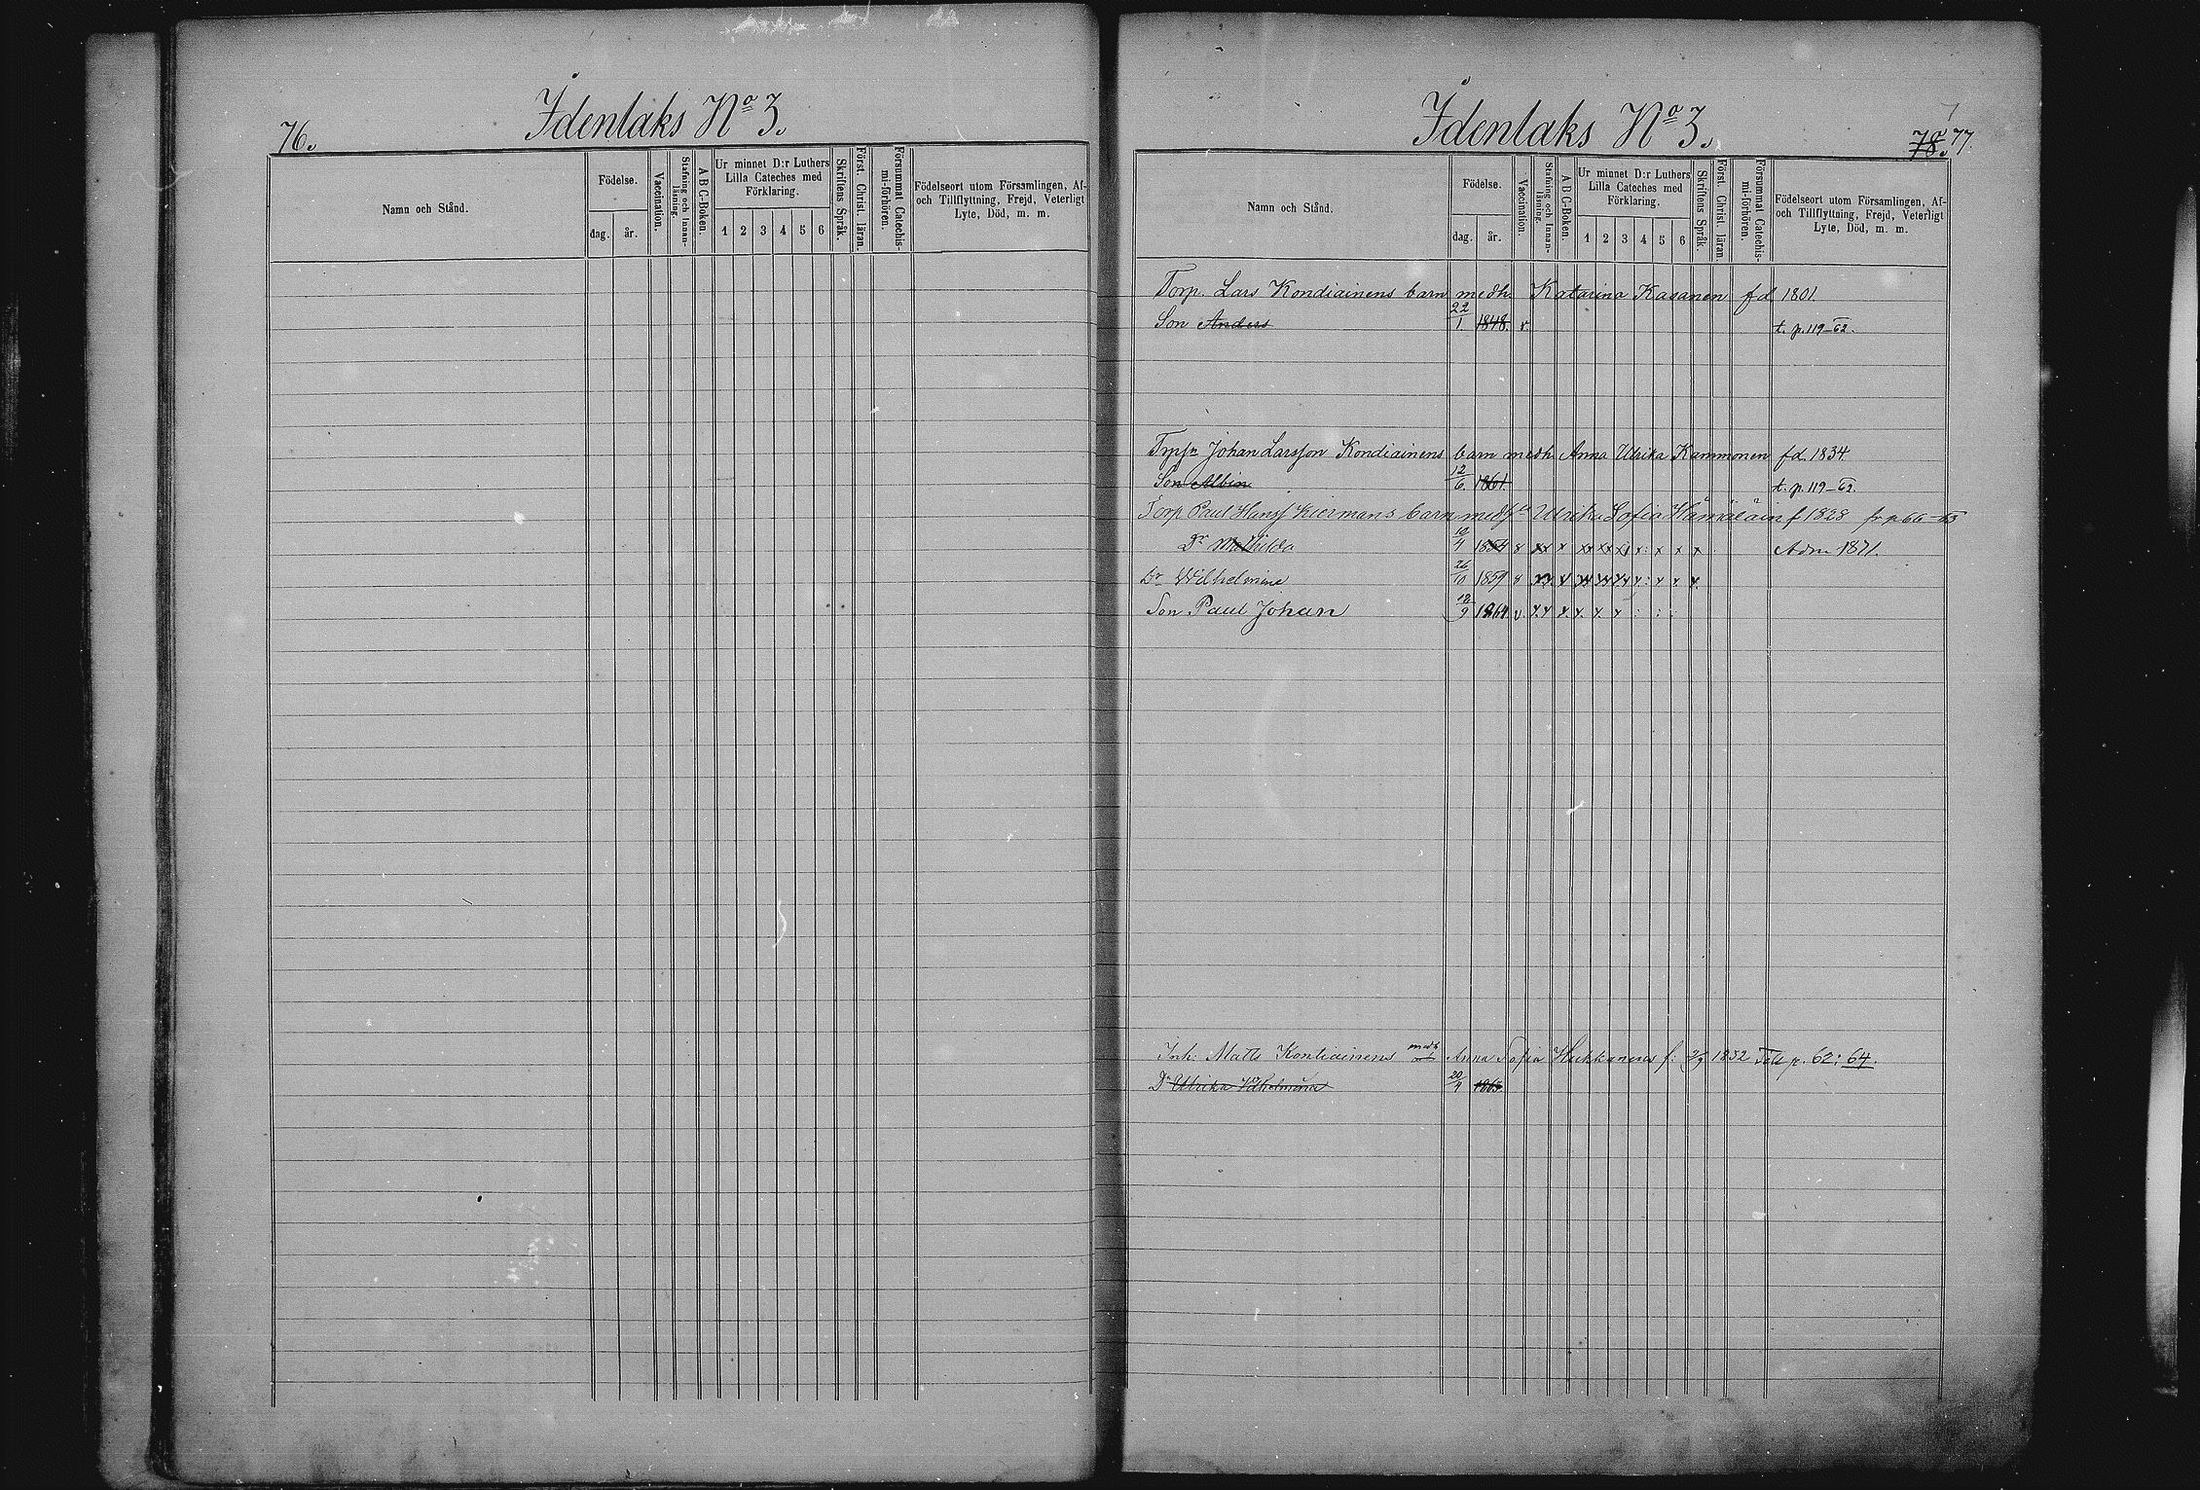 76.
Idenlaks No 3.
Namn och Stånd.
Födelse.
dag.
år.
Vaccination.
Stafning och Innan-läsning.
A B C-Boken.
Ur minnet D:r Luthers
Lilla Cateches med
Förklaring.
1 2 3 4 5 6
Skriftens Språk.
Först. Christ. läran.
Försummat Catechis-mi-förhören.
Födelseort utom Församlingen, Af-
och Tillflyttning, Frejd, Veterligt
Lyte, Död, m. m.
Idenlaks No 3.
78. 77.
Namn och Stånd.
Födelse.
dag.
år.
Vaccination.
Stafning och Innan-läsning.
A B C-Boken.
Ur minnet D:r Luthers
Lilla Cateches med
Förklaring.
1 2 3 4 5 6
Skriftens Språk.
Först. Christ. läran.
Försummat Catechis-mi-förhören.
Födelseort utom Församlingen, Af-
och Tillflyttning, Frejd, Veterligt
Lyte, Död, m. m.
Torp. Lars Kondiainens barn medh. Katarina Kasanen fd 1801.
Son Anders 22/1 1848. v. t. p. 119-62.
Johan Larsson Kondiainens barn medh Anna Ulrika Kammonen fd. 1834
Son Albin 12/6. 1861. t. p. 119-62.
Torp Paul Kiermans barn Ulrika Sofia f 1828 fr p 66-63
Dr Mathilda 10/4 1854 x x x x x x x x x Adm 1871.
Dr Wilhelmine 26/10 1859 x x x x x x x x x
Son Paul Johan 18/9 1864 v. x x x x x x
Inh: Matts Kontiainens medh Anna Sofia Hukkanens f: 2/9 1832 p. 62: 64.
Dr Ulrika Wilhelmina 20/4 1865.